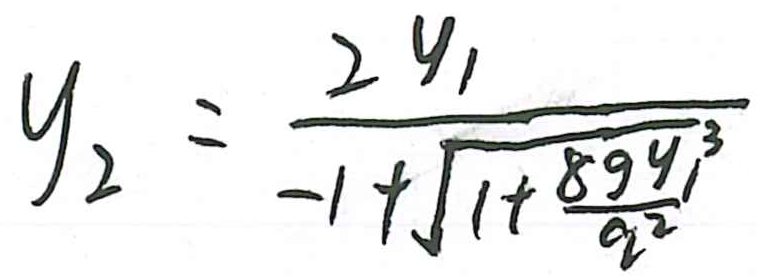 y₂ = 2y₁ / (-1 + √(1 + 8gy₁³ / q²))